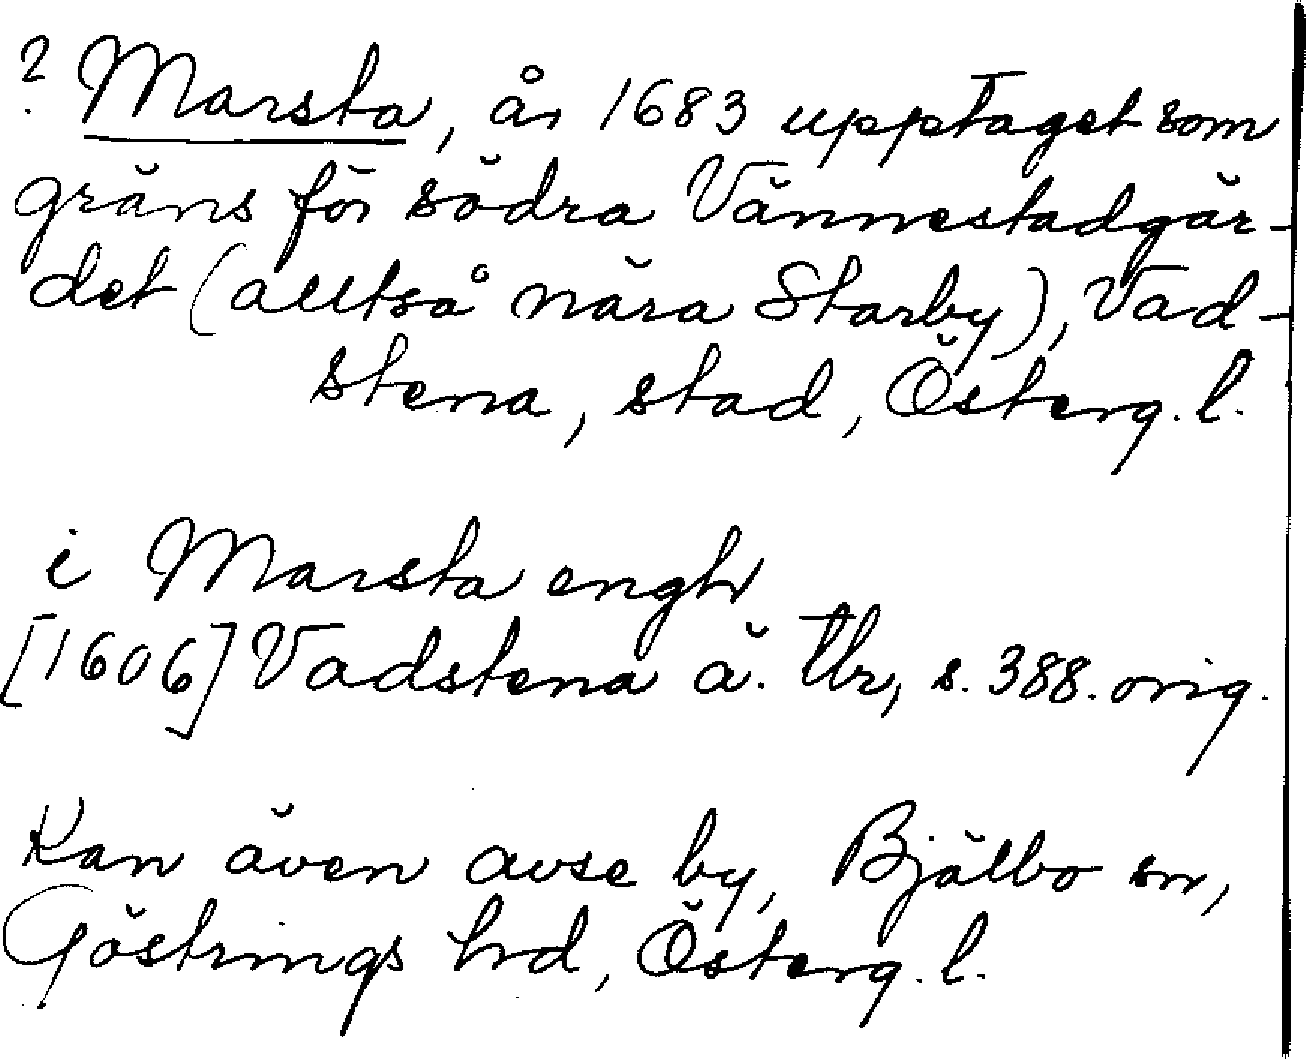 ? Marsta, år 1683 upptaget som
gräns för södra Vännestadgär-
det (alltså nära Starby), Vad-
stena, stad, Österg. l.
i Marsta engh
[1606] Vadstena ä. Tb, s. 388. orig.
Kan även avse by, Bjälbo sn,
Göstrings hd, Österg. l.